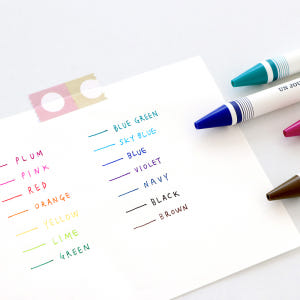 PLUM
PINK
RED
ORANGE
YELLOW
LIME
GREEN
BLUE GREEN
SKY BLUE
BLUE
VIOLET
NAVY
BLACK
BROWN
UN JOUR